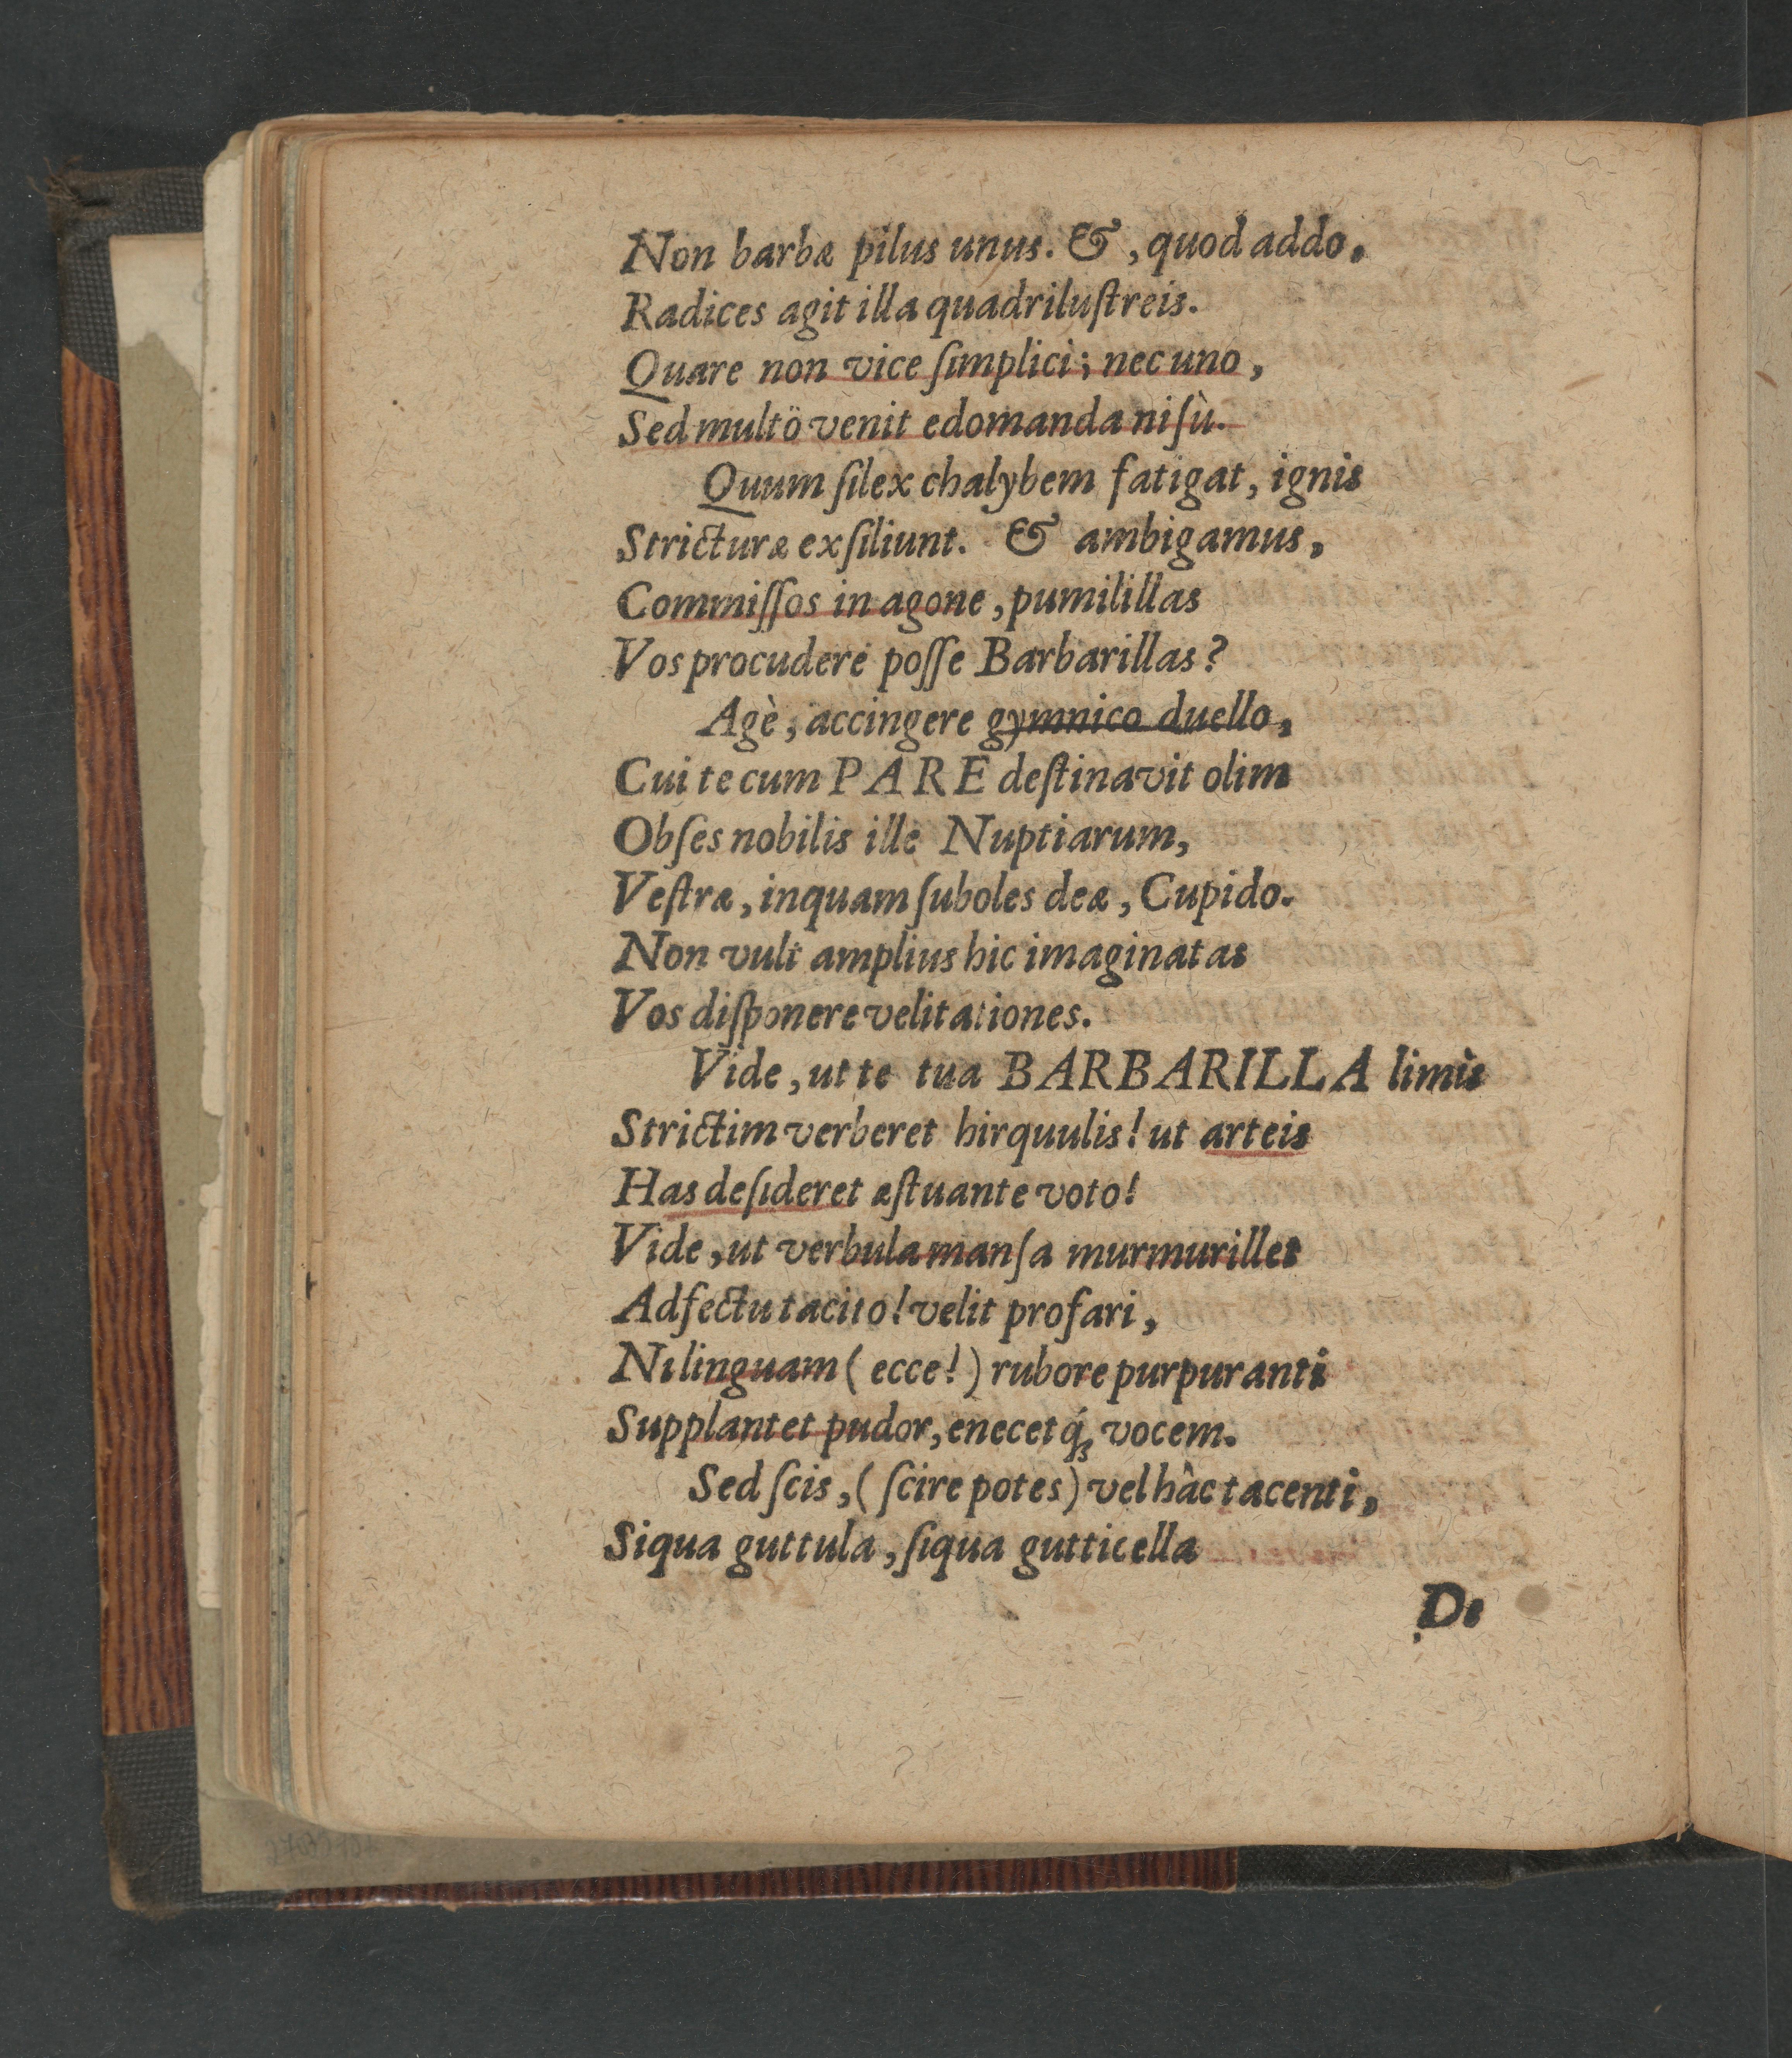 Non barbæ pilus unus. &, quod addo,
Radices agit illa quadriluſtreis.
Quare non vice ſimplici; nec uno,
Sed multö venit edomanda niſù.
Quum ſilex chalybem fatigat, ignis
Stricturæ exſiliunt. & ambigamus,
Commiſſos in agone, pumilillas
Vos procudere poſſe Barbarillas?
Agè, accingere gymnico duello,
Cui te cum PARE deſtinavit olim
Obſes nobilis ille Nuptiarum,
Veſtræ, inquam ſuboles deæ, Cupido.
Non vult amplius hic imaginatas
Vos diſponere velitationes.
Vide, ut te tua BARBARILLA limis
Strictim verberet hirquulis! ut arteis
Has deſideret æſtuante voto!
Vide, ut verbula manſa murmurillet
Adfectu tacito! velit profari,
Ni linguam (ecce!) rubore purpuranti
Supplantet pudor, enecetq́; vocem.
Sed ſcis, (ſcire potes) vel hâc tacenti,
Siqua guttula, ſiqua gutticella
De